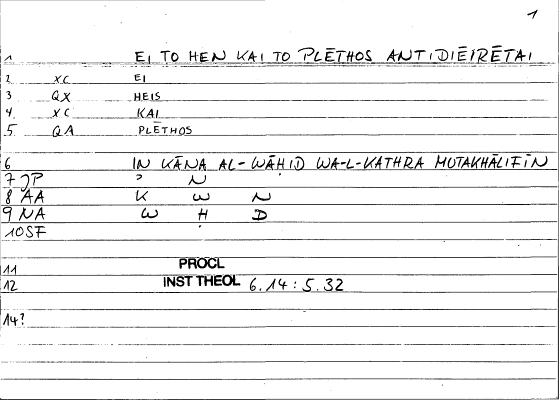 1
1 EI TO HEN KAI TO PLĒTHOS ANTIDIĒIRĒTAI
2 XC EI
3 QX HEIS
4. XC KAI
5. QA PLĒTHOS
6 IN KĀNA AL-WĀḤID WA-L-KATHRA MUTAKHĀLIFĪN
7 JP ʾ N
8 AA K W N
9 NA W Ḥ D
10 SF
11 PROCL
12 INST THEOL 6.14:5.32
14?